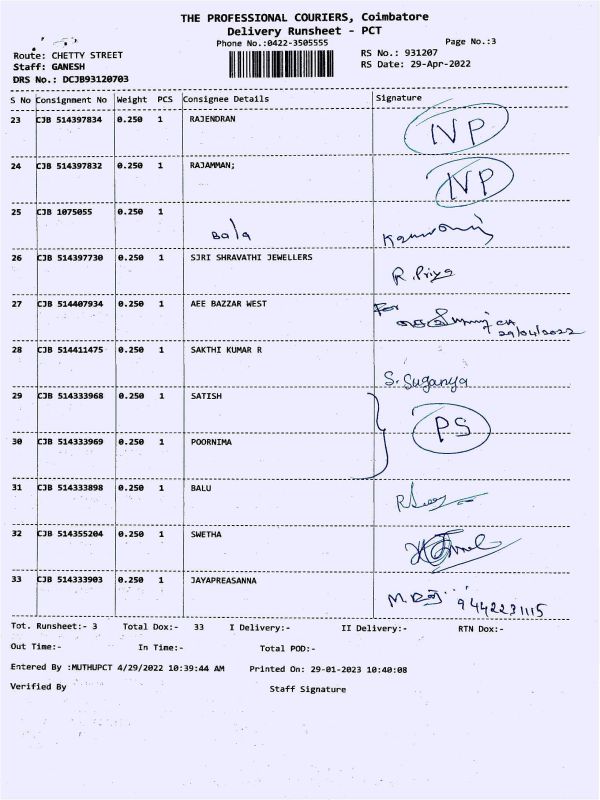 THE PROFESSIONAL COURIERS, Coimbatore
Delivery Runsheet - PCT
Phone No.:0422-3505555
Page No.:3
Route: CHETTY STREET
RS No.: 931207
Staff: GANESH
RS Date: 29-Apr-2022
DRS No.: DCJB93120703
S No Consignment No Weight PCS Consignee Details Signature
23 CJB 514397834 0.250 1 RAJENDRAN NP
24 CJB 514397832 0.250 1 RAJAMMAN; NP
25 CJB 1075055 0.250 1
Bala
26 CJB 514397730 0.250 1 SJRI SHRAVATHI JEWELLERS
R. Priya
27 CJB 514407934 0.250 1 AEE BAZZAR WEST For
29/04/2022
28 CJB 514411475 0.250 1 SAKTHI KUMAR R
S. Suganya
29 CJB 514333968 0.250 1 SATISH
PS
30 CJB 514333969 0.250 1 POORNIMA
31 CJB 514333898 0.250 1 BALU
32 CJB 514355204 0.250 1 SWETHA
33 CJB 514333903 0.250 1 JAYAPREASANNA
9442231115
Tot. Runsheet:- 3 Total Dox:- 33 I Delivery:- II Delivery:- RTN Dox:-
Out Time:- In Time:- Total POD:-
Entered By :MUTHUPCT 4/29/2022 10:39:44 AM Printed On: 29-01-2023 10:40:08
Verified By Staff Signature